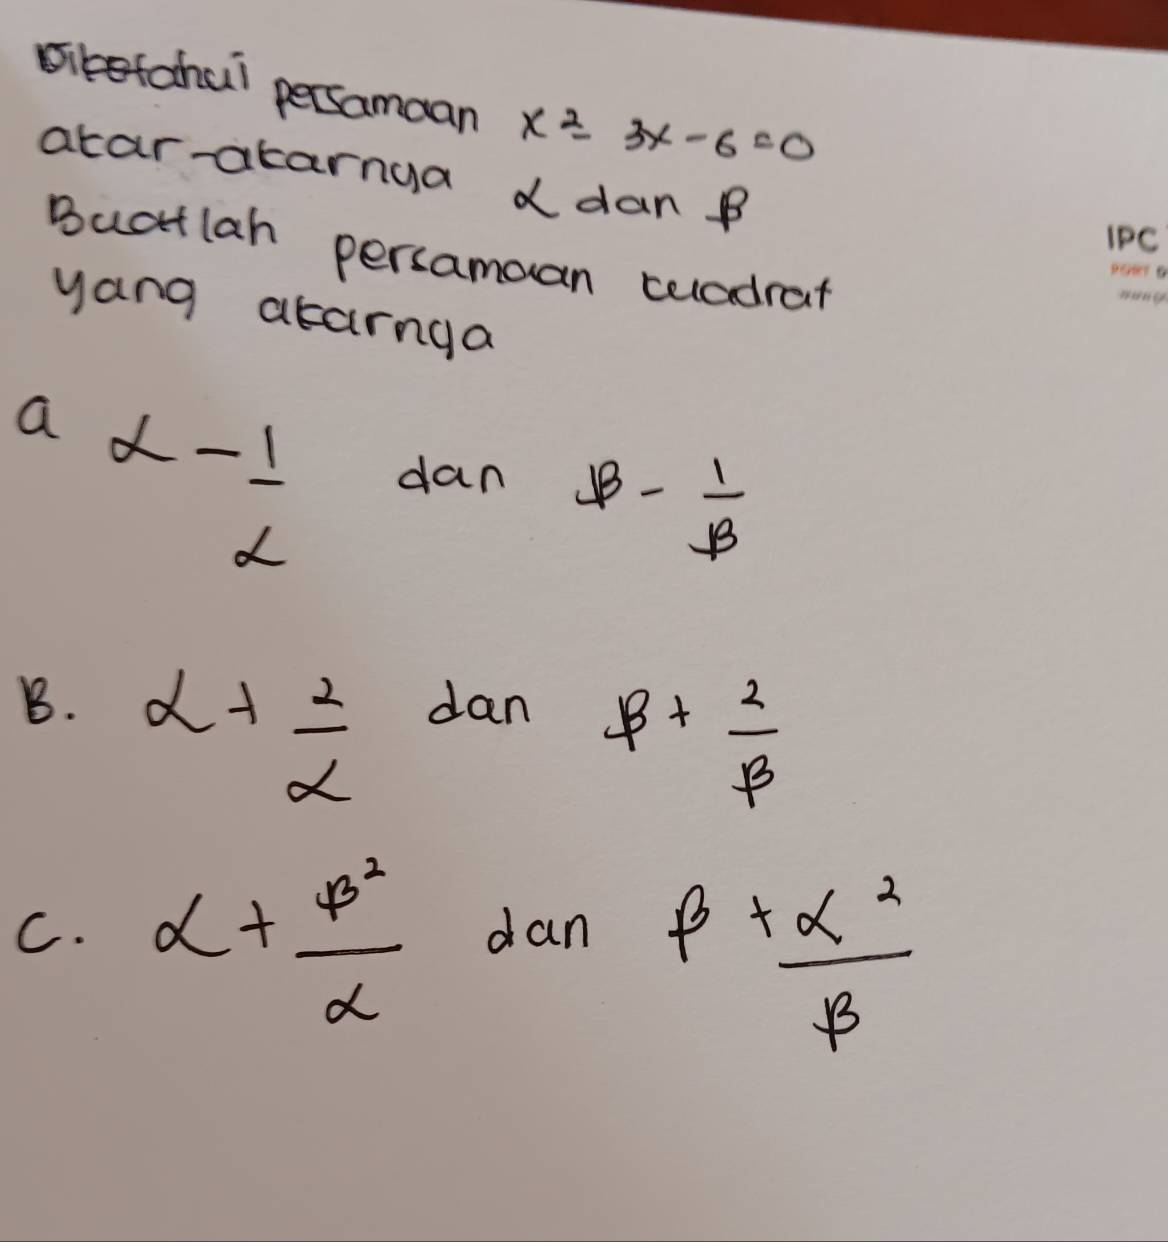 Diketahui persamaan x² - 3x - 6 = 0
akar-akarnya α dan β
Buatlah persamaan kuadrat
yang akarnya
a α - 1/α dan β - 1/β
B. α + 2/α dan β + 2/β
C. α + β²/α dan β + α²/β
IPC